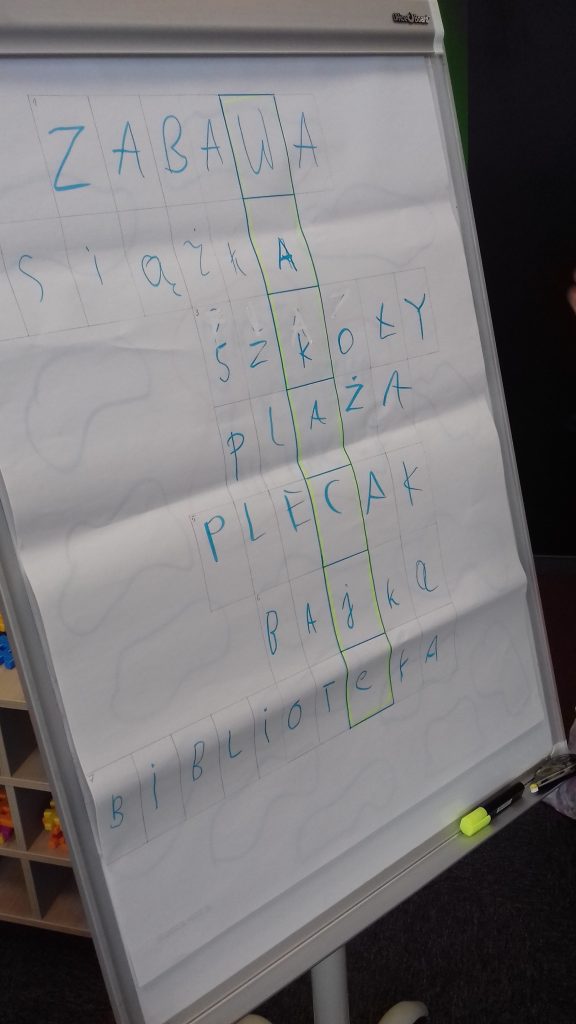 Office Board
1 ZABAWA
SiĄżkA
3 SZKOŁY
PlAŻA
5 PLECAK
6 BAjkA
7 BiBLiOTeKA